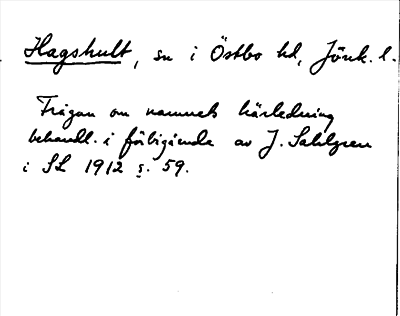 Hagshult, sn i Östbo hd, Jönk. l.
Frågan om namnets härledning
behandl. i förbigående av J. Sahlgren
i SL 1912 s. 59.